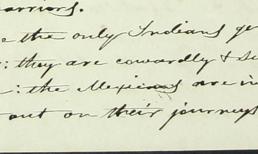 arriors.
e the only Indians ye
: they are cowardly &
: the Mexicans are in
out on their journeys